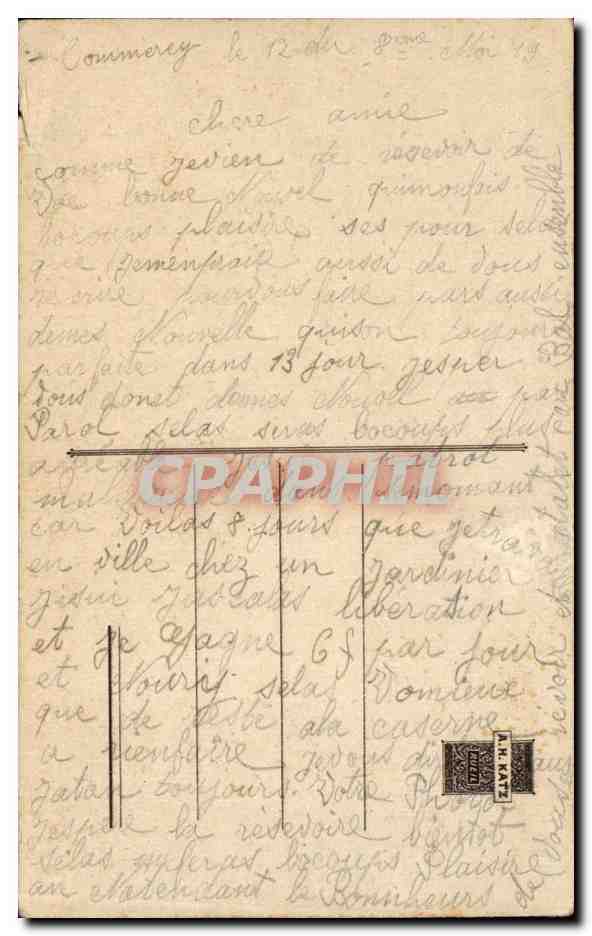 Commercy le 12 du 8eme Moi 19
chere amie
comme jevien de résevoir de
De bonne Nouvel quimonfais
bocoups plaisire ses pour selas
que jemenpraite aussi de vous
récrire pourvous faire pars ausi
demes Nouvelle quison toujours
parfaite dans 13 jour jesper
vous donet demes Nouvell par
Parol selas seras bocoups plus
agréable
dans
car Voilas 8 jours que jetravail
en ville chez un Jardinier
jesui jusquas libération
et je Gagne 6 f par jour
et Nourij selas Vomieux
que de resté ala caserne
a rienfaire jevous dirais aussi
jatan toujours Votre Photo
jespère la résevoire bientot
selas meferas bocoups Plaisir
an Natendant le Bonnheurs
de Vous revoir au Bal ensemble
CPAPHIL
A.H. KATZ